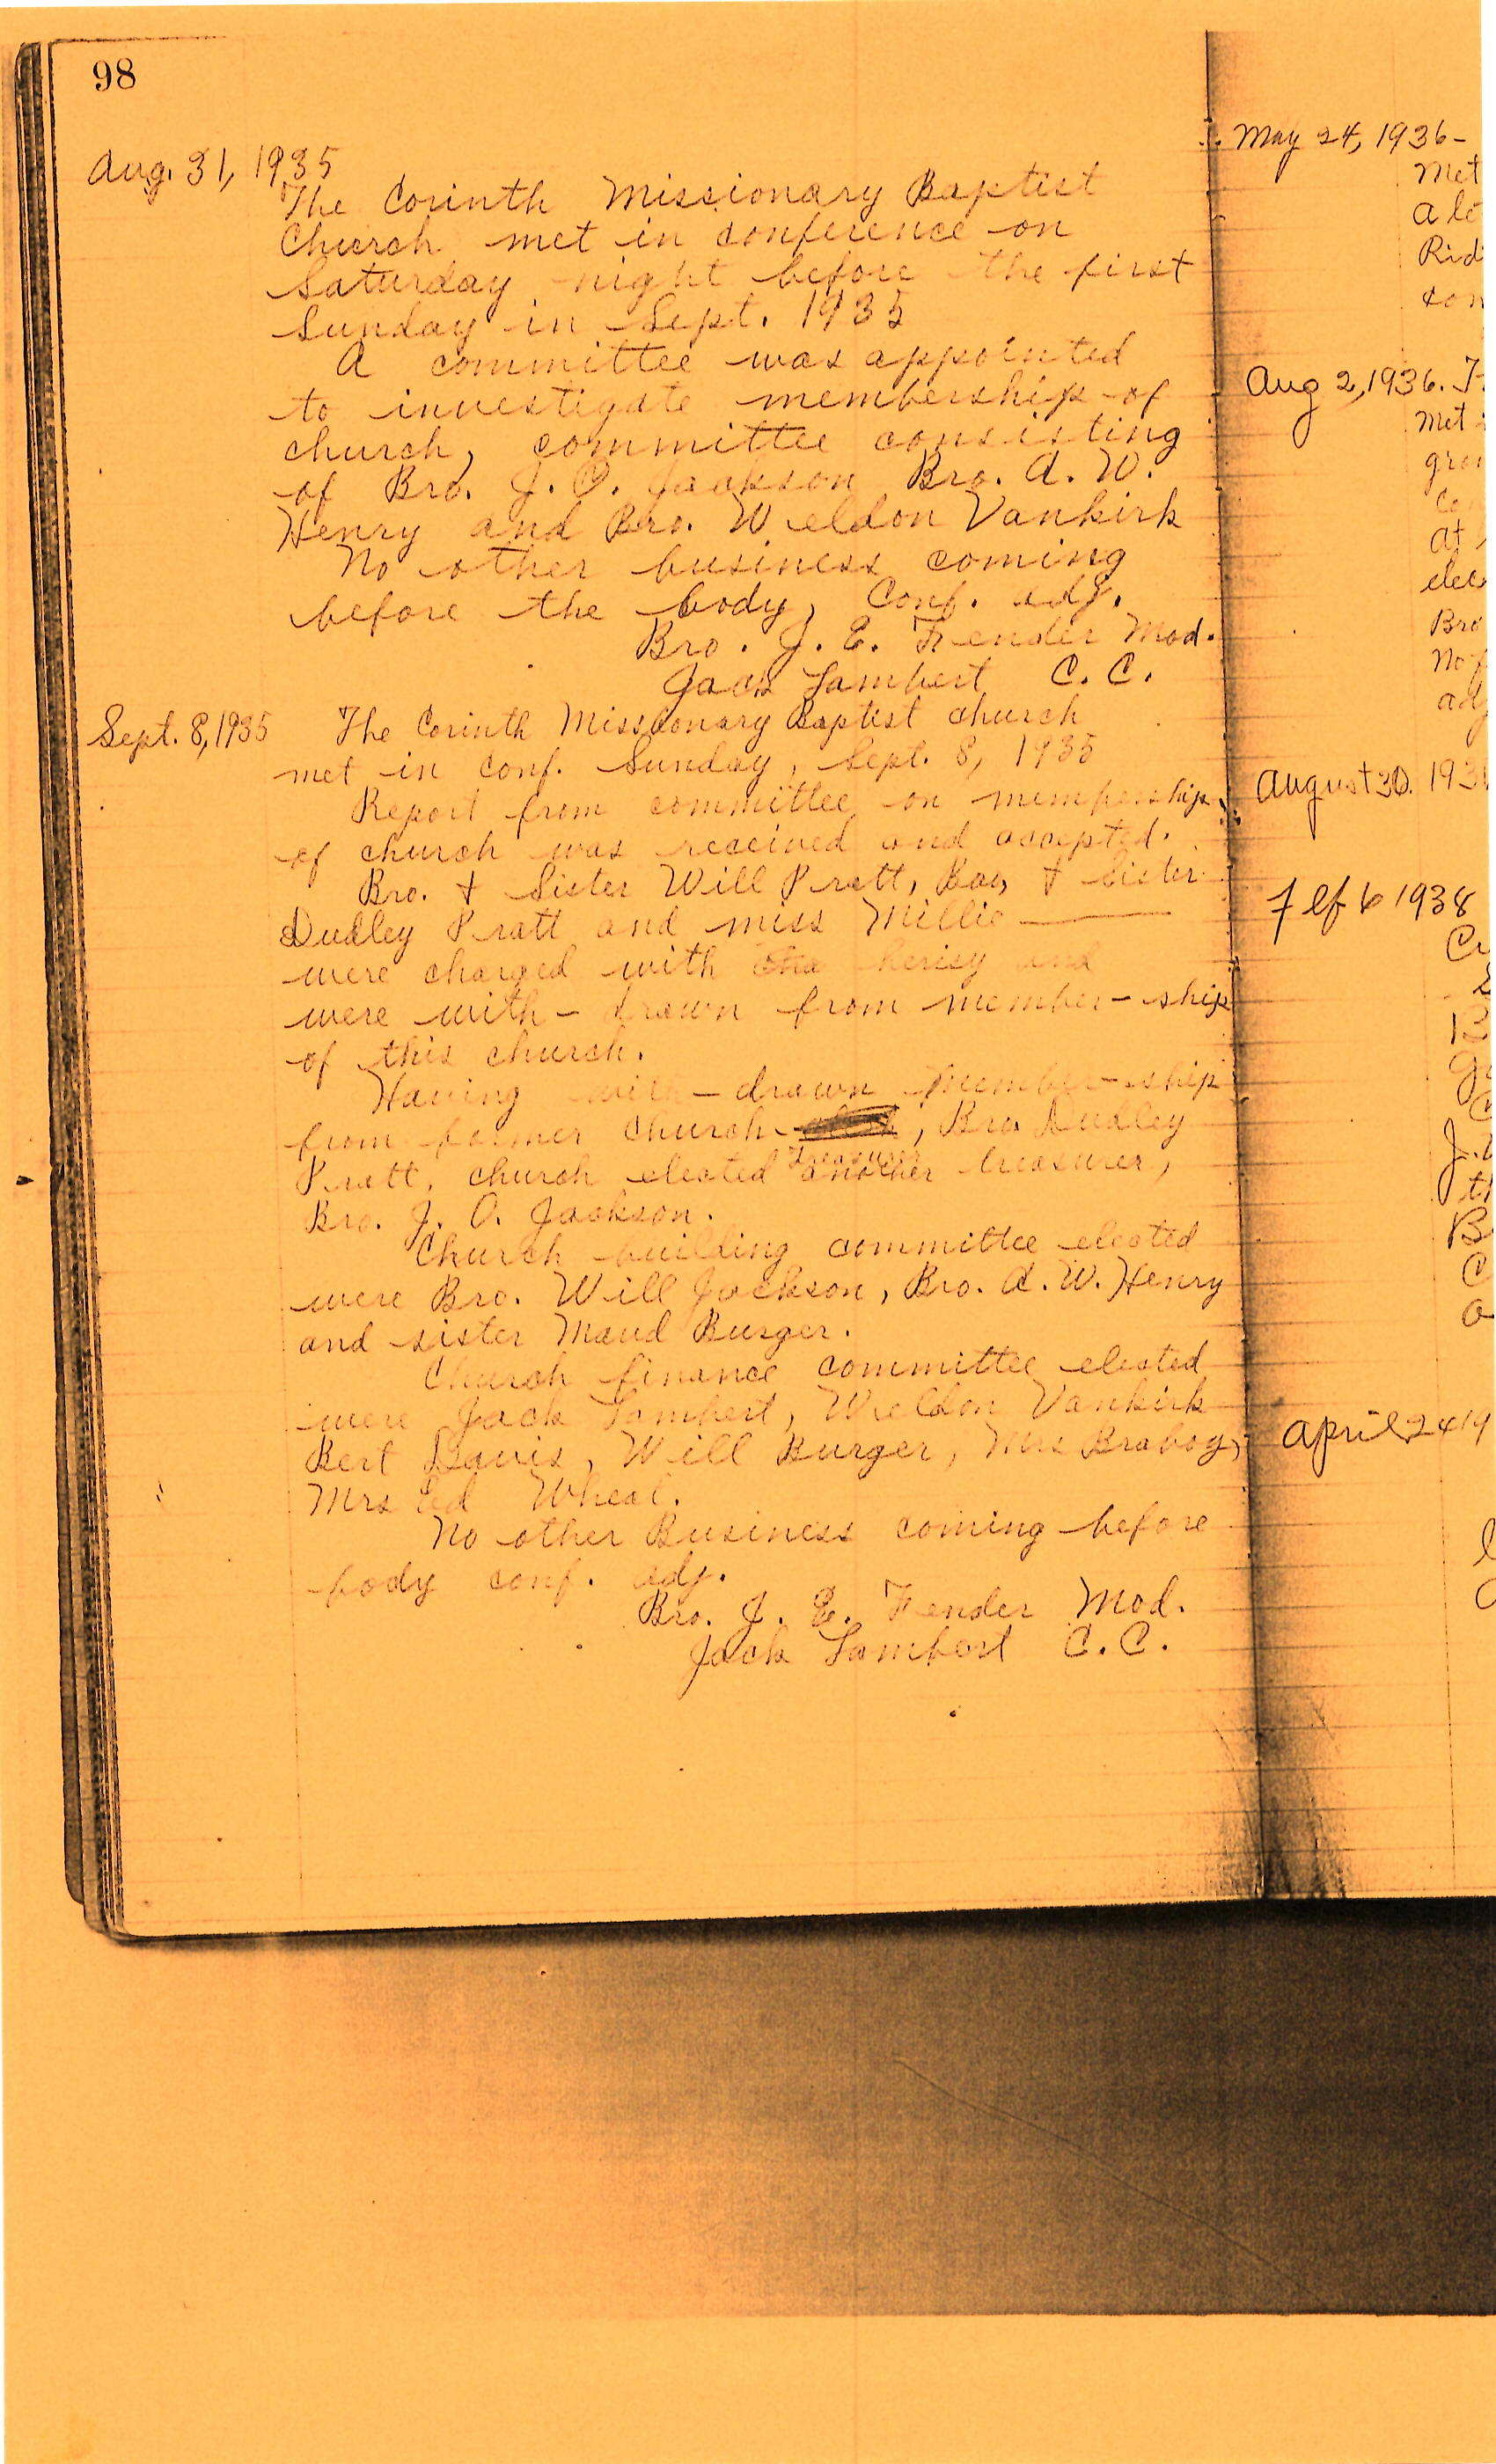 98
Aug. 31, 1935
The Corinth Missionary Baptist
Church met in conference on
Saturday night before the first
Sunday in Sept. 1935
A committee was appointed
to investigate membership of
church, committee consisting
of Bro. J. O. Jackson Bro. A. W.
Henry and Bro. Weldon Vankirk
No other business coming
before the body, Conf. adj.
Bro. J. E. Fender Mod.
Jack Lambert C. C.
Sept. 8, 1935 The Corinth Missionary Baptist church
met in Conf. Sunday, Sept. 8, 1935
Report from committee on membership
of church was received and accepted.
Bro. & Sister Will Pratt, Bro, & Sister
Dudley Pratt and miss Millie ———
were charged with herisy and
were with-drawn from member-ship
of this church.
Having with-drawn member-ship
from former Church Treasurer, Bro. Dudley
Pratt, church elected another treasurer,
Bro. J. O. Jackson.
Church building committee elected
were Bro. Will Jackson, Bro. A. W. Henry
and sister Maud Burger.
Church finance committee elected
were Jack Lambert, Weldon Vankirk
Bert Davis, Will Burger, Mrs Braboy,
Mrs Ed Wheat.
No other Business coming before
body conf. adj.
Bro. J. E. Fender Mod.
Jack Lambert C. C.
May 24, 1936-
Met
Rid
con
Aug 2, 1936.
Met
elec
Bro
No
adj
August 30. 193
Feb 6 1938
J.
April 24 19